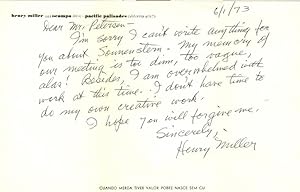 henry miller 444 ocampo drive – pacific palisades california 90272
6/1/73
Dear Mr. Petersen –
I'm sorry I can't write anything for
you about Sonnenstern. My memory of
our meeting is too dim, too vague,
alas! Besides, I am overwhelmed with
work at this time. I don't have time to
do my own creative work.
I hope you will forgive me.
Sincerely,
Henry Miller
QUANDO MERDA TIVER VALOR POBRE NASCE SEM CU